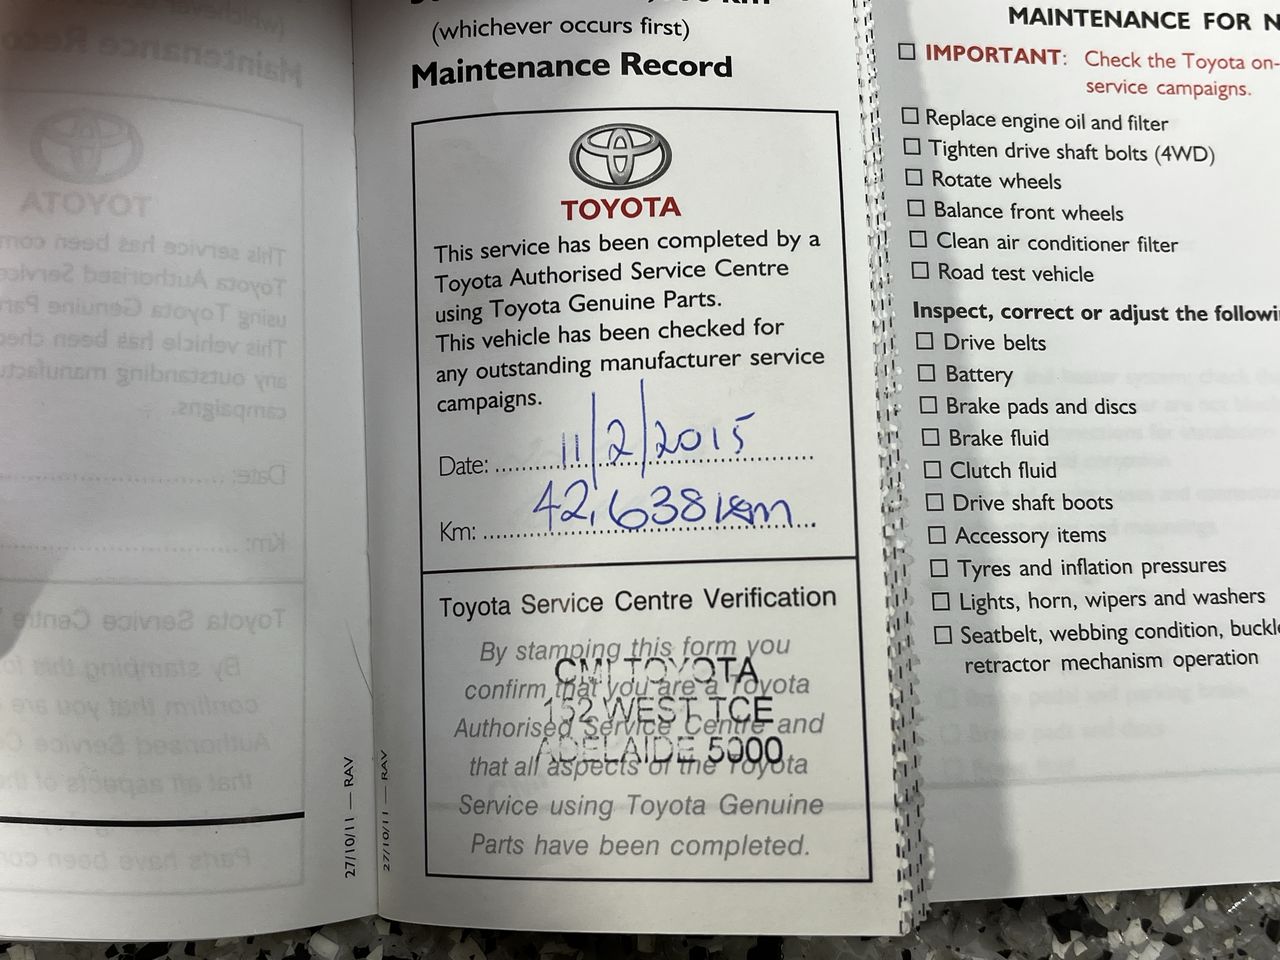 (whichever occurs first)
Maintenance Record
TOYOTA
This service has been completed by a
Toyota Authorised Service Centre
using Toyota Genuine Parts.
This vehicle has been checked for
any outstanding manufacturer service
campaigns.
Date: 11/2/2015
Km: 42,638km
Toyota Service Centre Verification
By stamping this form you
confirm that you are a Toyota
Authorised Service Centre and
that all aspects of the Toyota
Service using Toyota Genuine
Parts have been completed.
CMI TOYOTA
152 WEST TCE
ADELAIDE 5000
27/10/11 — RAV
27/10/11 — RAV
MAINTENANCE FOR N
IMPORTANT: Check the Toyota on-
service campaigns.
Replace engine oil and filter
Tighten drive shaft bolts (4WD)
Rotate wheels
Balance front wheels
Clean air conditioner filter
Road test vehicle
Inspect, correct or adjust the followi
Drive belts
Battery
Brake pads and discs
Brake fluid
Clutch fluid
Drive shaft boots
Accessory items
Tyres and inflation pressures
Lights, horn, wipers and washers
Seatbelt, webbing condition, buckle
retractor mechanism operation